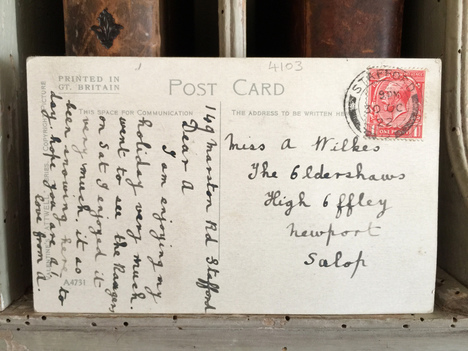 4103
PRINTED IN
GT. BRITAIN
POST CARD
THIS SPACE FOR COMMUNICATION
THE ADDRESS TO BE WRITTEN HERE
149 Marston Rd Stafford
Dear A
I am enjoying my
holiday very much.
went to see the
on Sat I enjoyed it
very much it as
been snowing here
to
day hope you are A 1
love from A.
A4731
Miss A Wilkes
The Oldershaws
High Offley
Newport
Salop
STAFFORD
30 DC
1